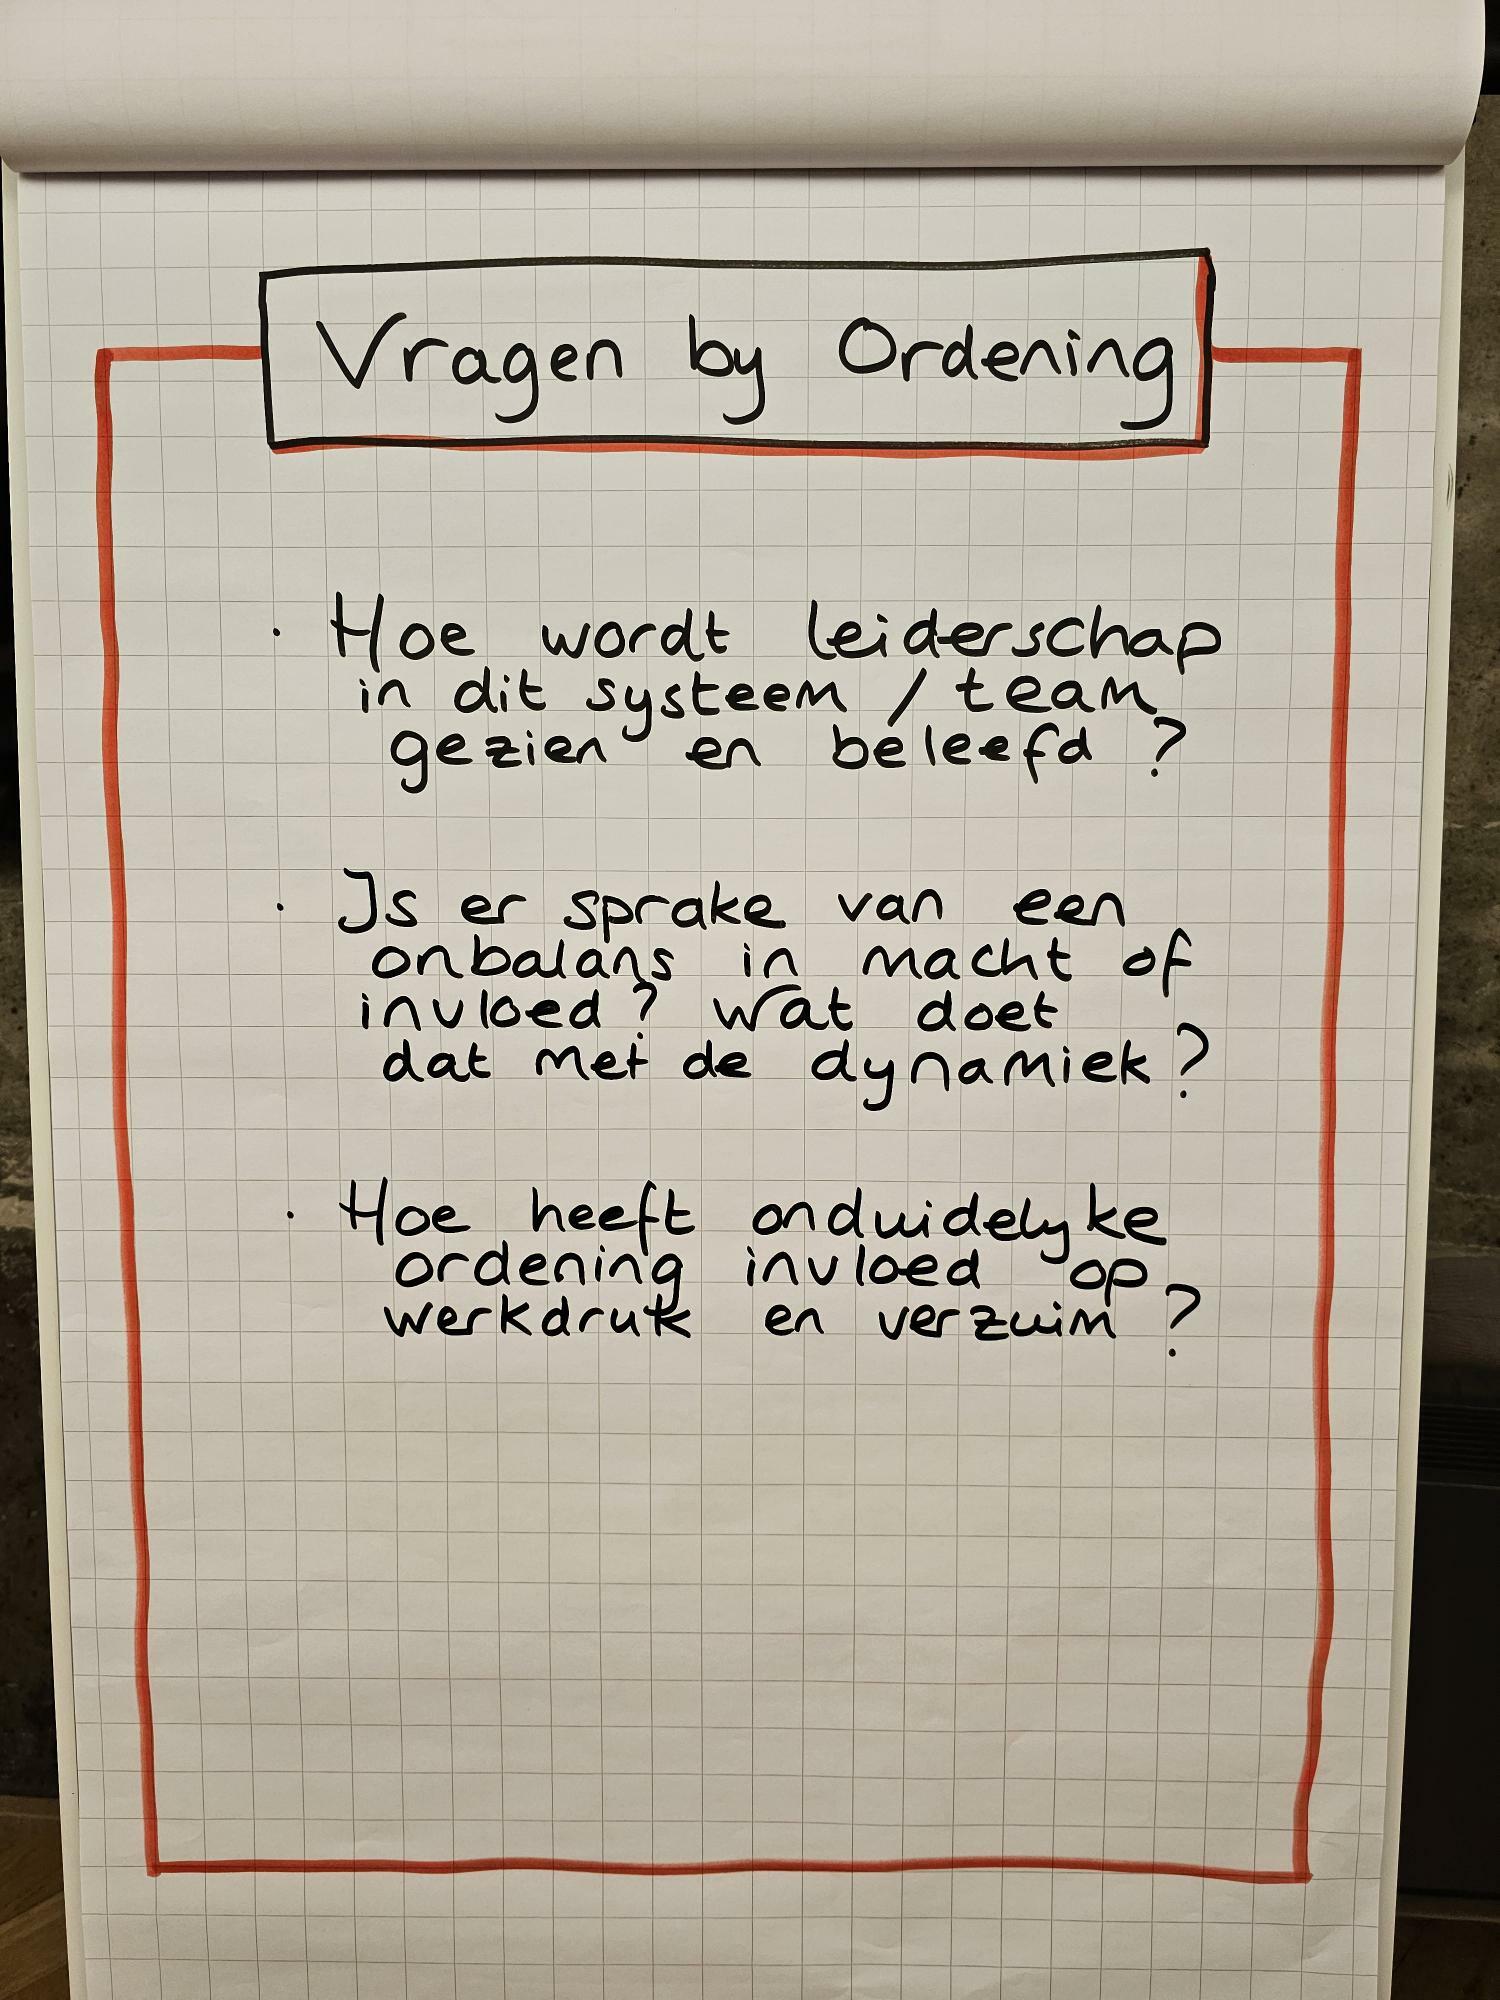 Vragen by Ordening
· Hoe wordt leiderschap
in dit systeem / team
gezien en beleefd ?
· Is er sprake van een
onbalans in macht of
invloed ? Wat doet
dat met de dynamiek ?
· Hoe heeft onduidelyke
ordening invloed op
werkdruk en verzuim ?